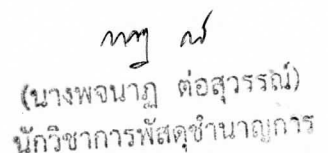 (นางพจนาฏ ต่อสุวรรณ์)
นักวิชาการพัสดุชำนาญการ